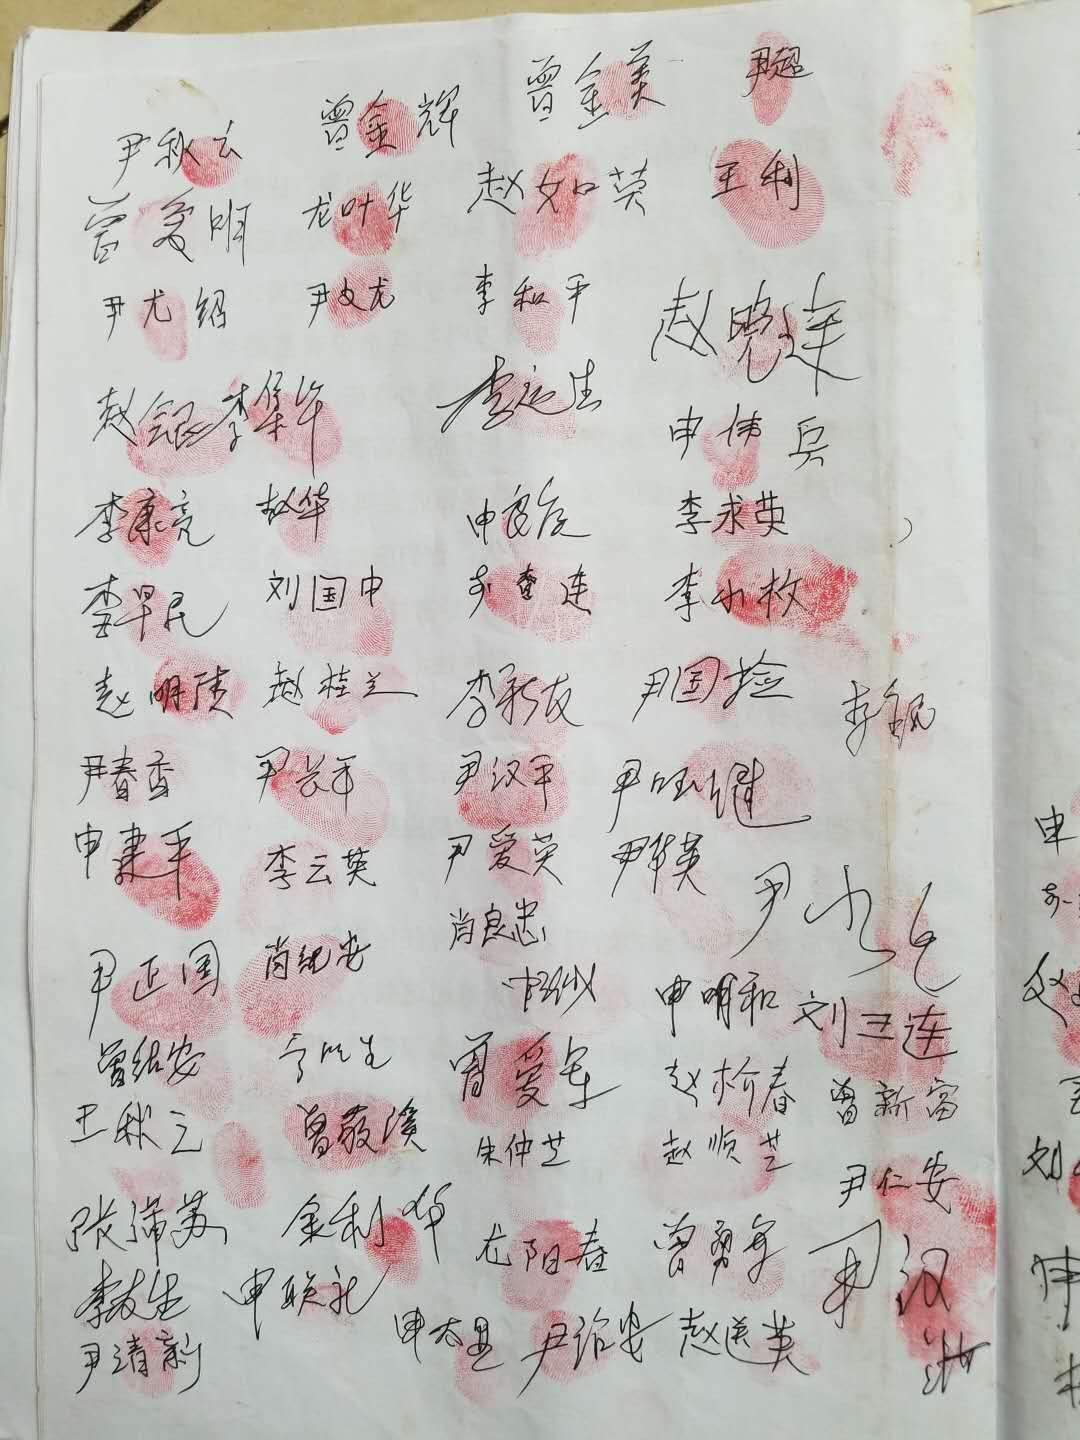 尹秋云 曾金辉 曾金美 尹超
曾爱明 龙叶华 赵如英 王利
尹尤绍 尹文尤 李和平 赵晓连
赵银 李华 李运生 申伟兵
李康亮 赵华 申良 李求英
李早民 刘国中 连 李小枚
赵明 赵桂兰 李新友 尹国检 李银
尹春香 尹兴平 尹汉平 尹 继
申肃平 李云英 尹爱英 尹华英
肖良忠 尹小
尹正国 肖纪安 申明和 刘卫连
曾绍安 生 曾爱军 赵柏春 曾新富
王秋云 曾敬溪 朱仲芝 赵顺芝 尹仁安
张满苏 金利华 龙阳春 曾勇军 尹汉
李友生 申联礼
尹清新 申太 尹治安 赵送英